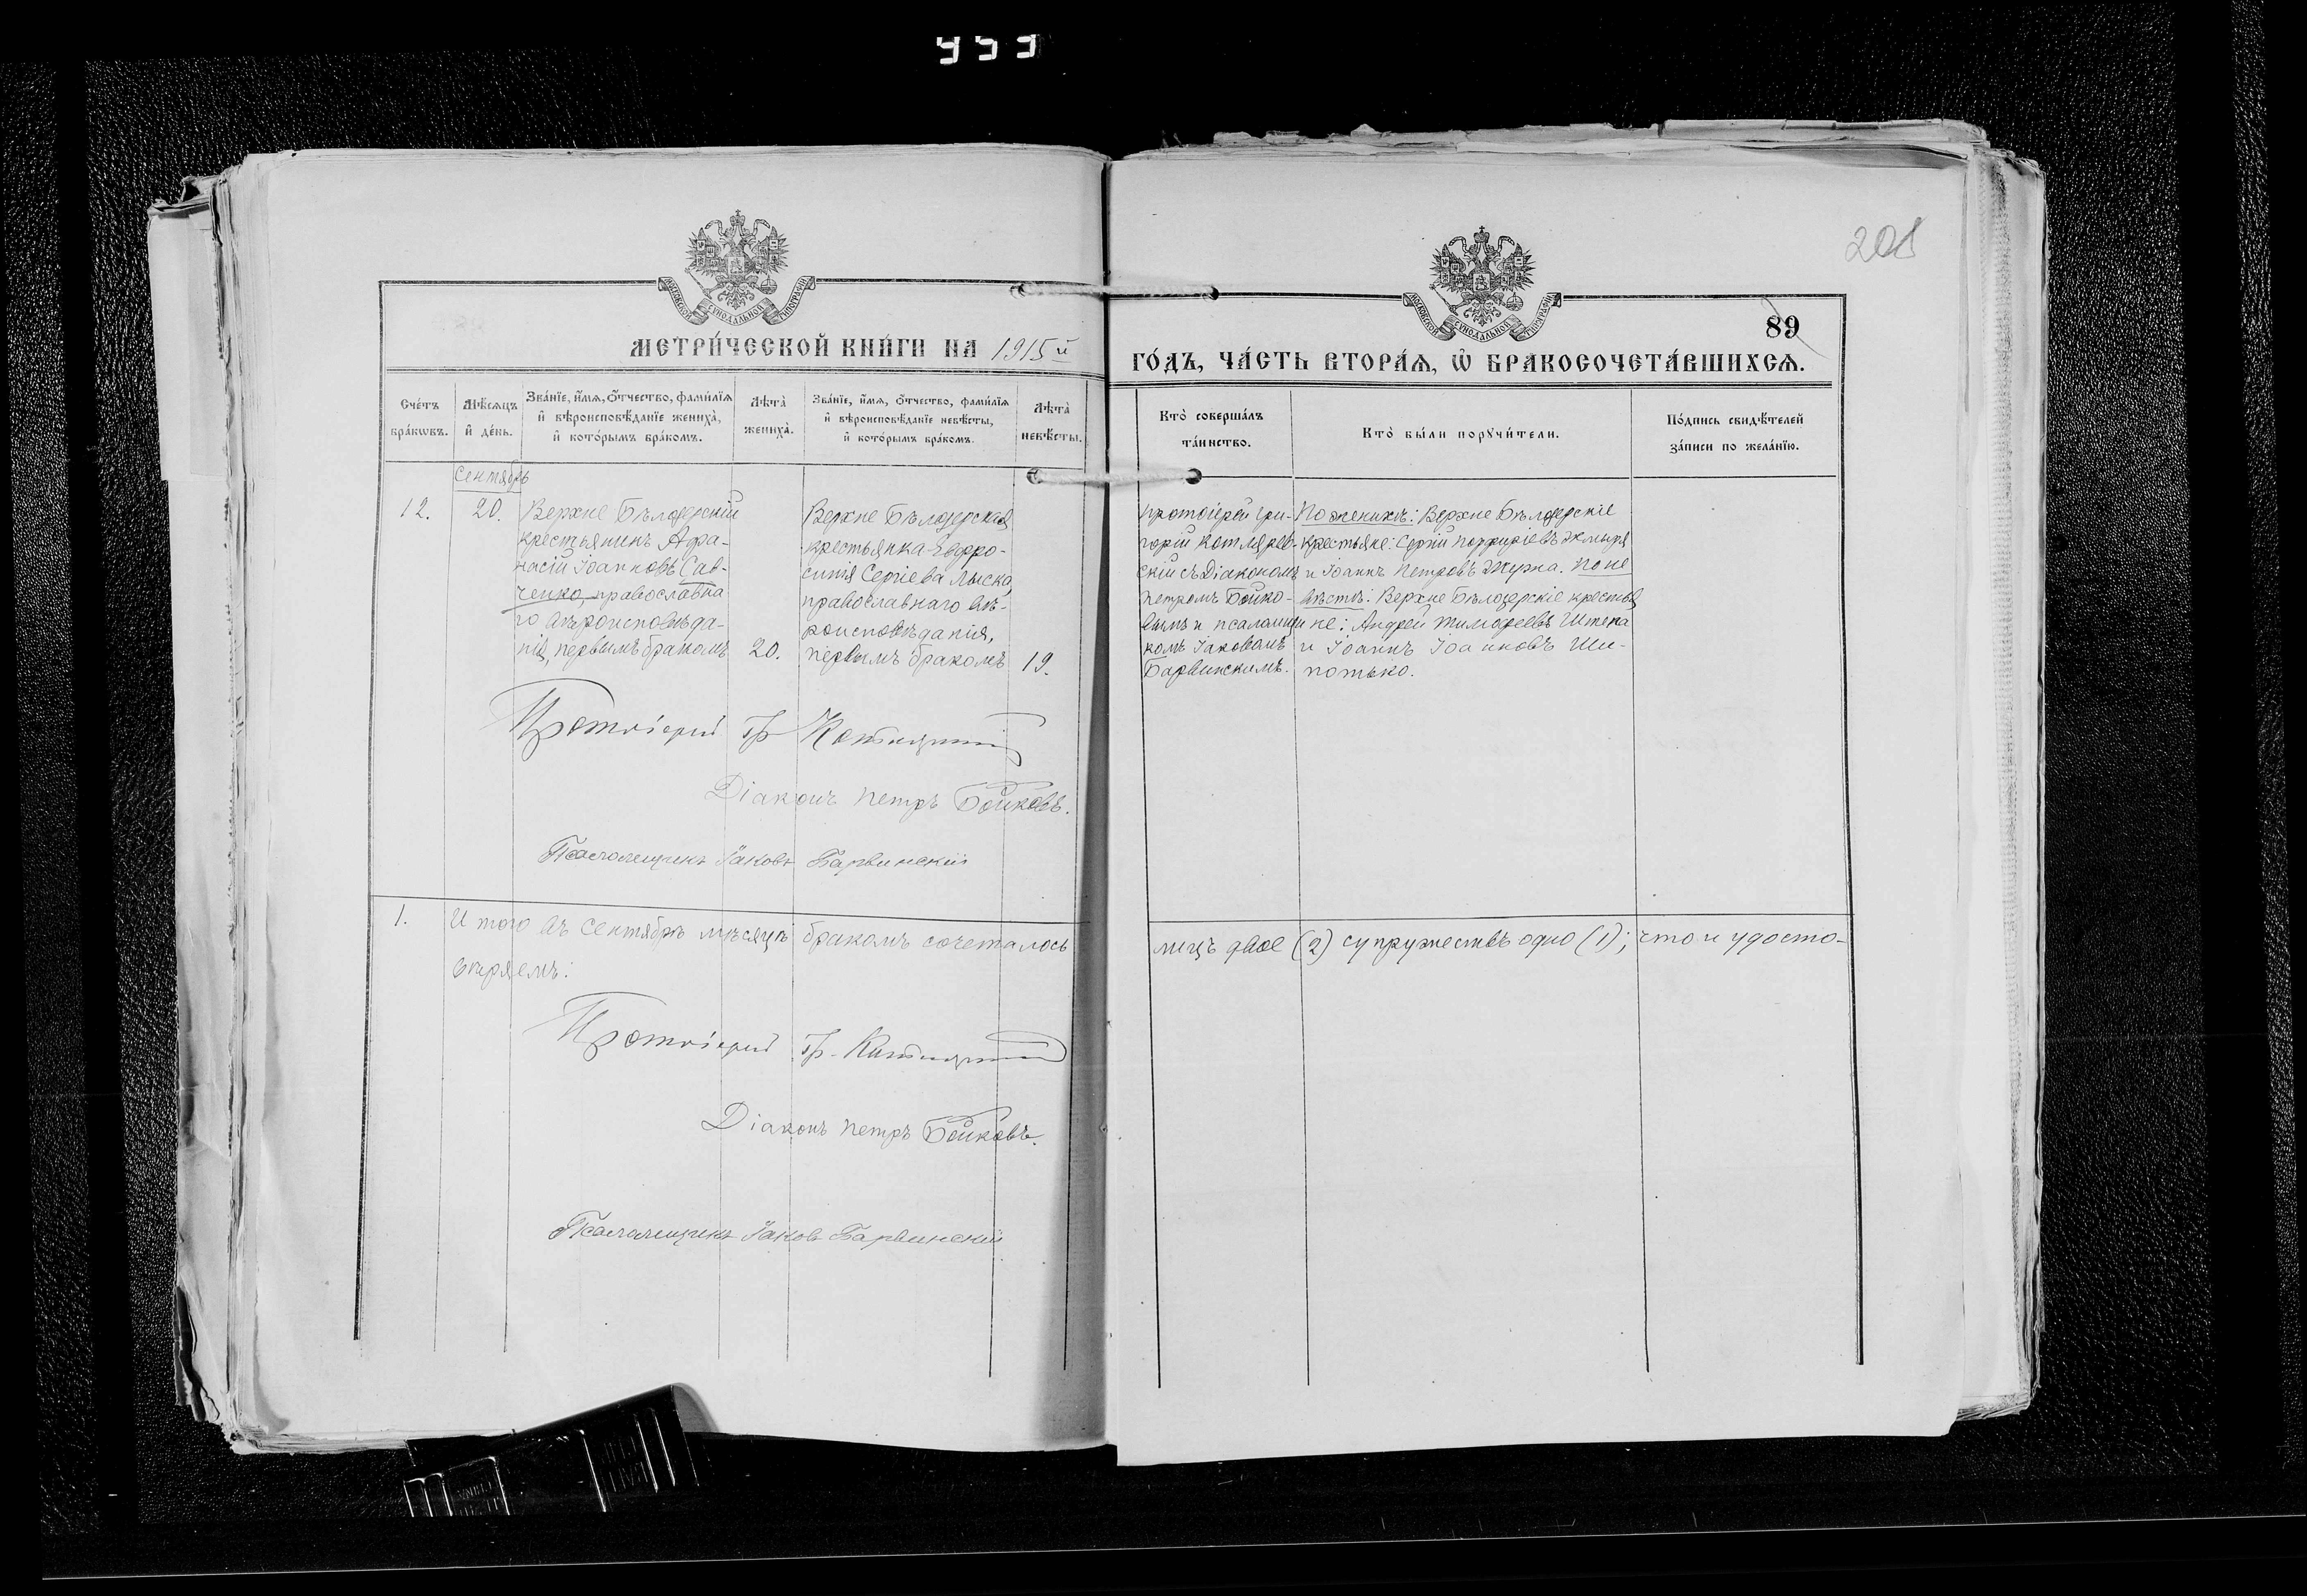 953
201
МОСКОВСКОЙ СѴНОДАЛЬНОЙ ТИПОГРАФІИ
МОСКОВСКОЙ СѴНОДАЛЬНОЙ ТИПОГРАФІИ
89
МЕТРИ́ЧЕСКОЙ КНИ́ГИ НА 1915й
ГО́ДЪ, ЧА́СТЬ ВТОРА́Ѧ, Ѽ БРАКОСОЧЕТА́ВШИХСѦ.
Сче́тъ бра́кѡвъ.
Мѣ́сѧцъ и҆ де́нь.
Зва́нїе, и҆́мѧ, ѻ҆́тчество, фами́лїѧ
и҆ вѣроисповѣ́данїе жениха̀,
и҆ кото́рымъ бра́комъ.
Лѣта̀ жениха̀.
Зва́нїе, и҆́мѧ, ѻ҆́тчество, фами́лїѧ
и҆ вѣроисповѣ́данїе невѣ́сты,
и҆ кото́рымъ бра́комъ.
Лѣта̀ невѣ́сты.
Кто̀ соверша́лъ
та́инство.
Кто̀ бы́ли порꙋчи́тели.
По́дпись свидѣ́телей
за́писи по жела́нїю.
Сентябрь
12.
20.
Верхне Бѣлозерскій
крестьянинъ Афа-
насій Іоанновъ Сав-
ченко, православна
го вѣроисповѣда-
нія, первымъ бракомъ
20.
Верхне Бѣлозерская
крестьянка Евфро-
синія Сергіева Лыско,
православнаго вѣ-
роисповѣданія,
первымъ бракомъ
19.
Протоіерей Гри-
горій Котляров-
скій съ Діакономъ
Петромъ Бойко-
вымъ и псаломщи
комъ Іаковомъ
Барвинскимъ.
По женихѣ: Верхне Бѣлозерскіе
крестьяне: Сергій Порфиріевъ Жмыря
и Іоаннъ Петровъ Журба. По не
вѣстѣ: Верхне Бѣлозерскіе крестья
не: Андрей Тимофеевъ Штепа
и Іоаннъ Іоанновъ Ши-
потько.
Протоіерей Гр Котляревскій
Діаконъ Петръ Бойковъ.
Псаломщикъ Іаковъ Барвинскій
1.
Итого въ Сентябрѣ мѣсяцѣ бракомъ сочеталось
лицъ двое (2) супружествъ одно (1); что и удосто-
вѣряемъ:
Протоіерей Гр. Котляревскій
Діаконъ Петръ Бойковъ.
Псаломщикъ Іаковъ Барвинскій